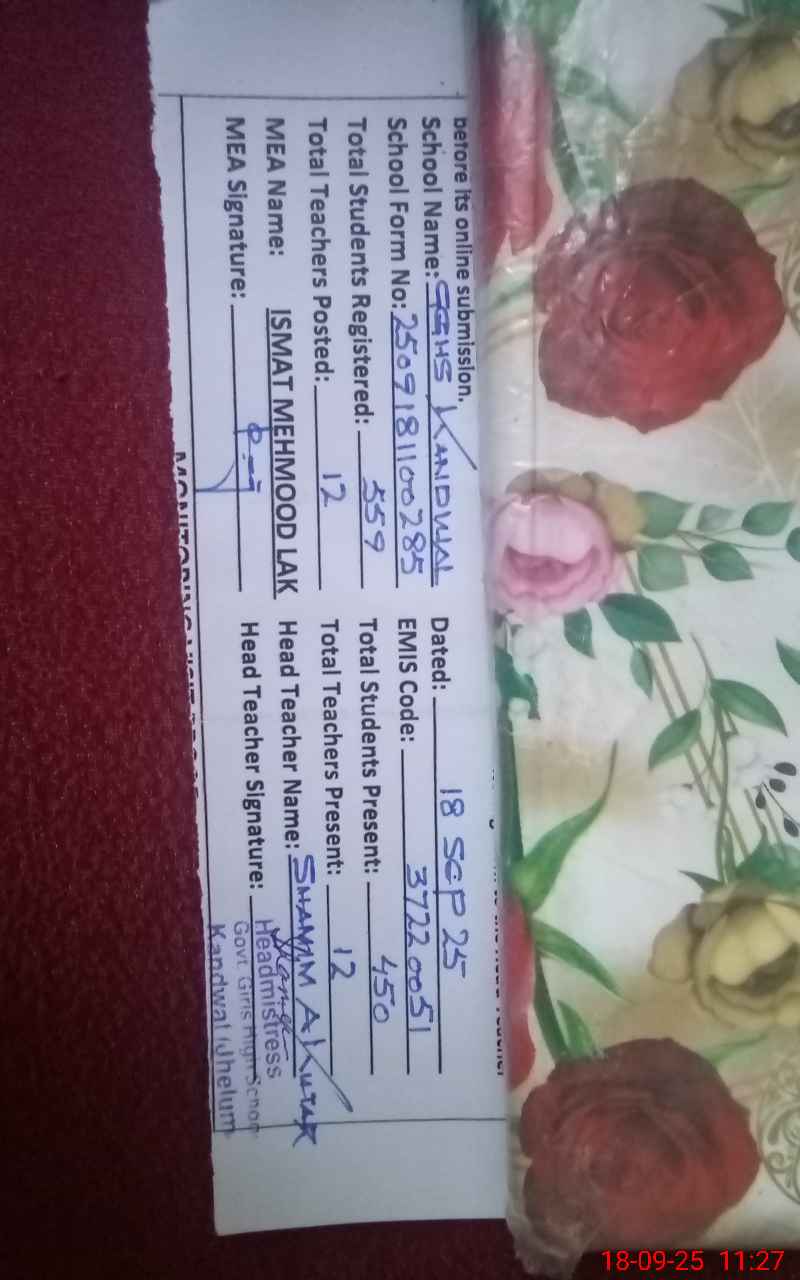 before its online submission.
School Name: GGHS KANDWAL Dated: 18 SEP 25
School Form No: 2509181100285 EMIS Code: 37220051
Total Students Registered: 559 Total Students Present: 450
Total Teachers Posted: 12 Total Teachers Present: 12
MEA Name: ISMAT MEHMOOD LAK Head Teacher Name: SHAMIM AKHTAR
MEA Signature: Head Teacher Signature:
Headmistress
Govt. Girls High School
Kandwal (Jhelum)
18-09-25 11:27